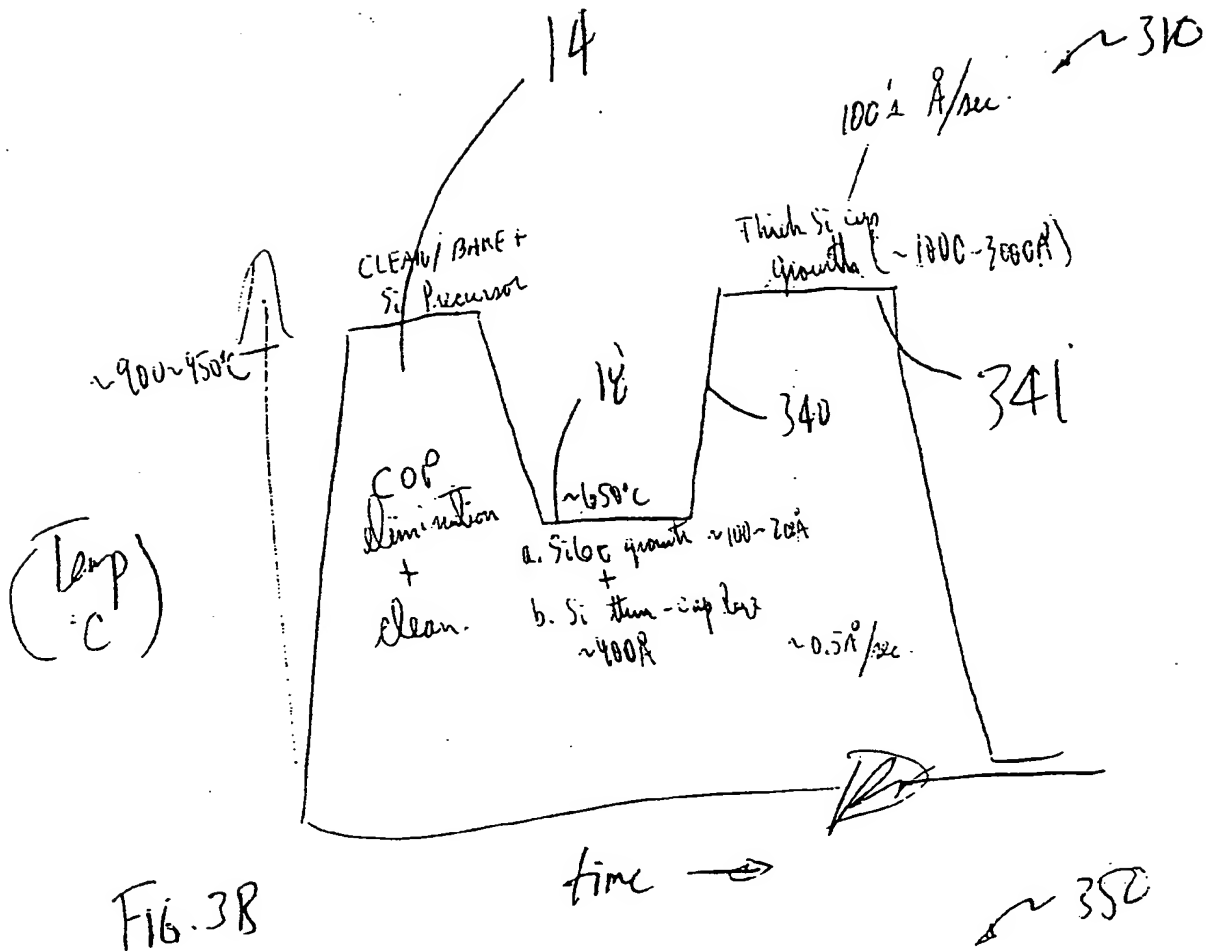 14
310
100's Å/sec.
CLEAN/BAKE +
Si Precursor
Thick Si cap
growth (~1000-3000Å)
~900~950°C
18
340
341
COP
elimination
+
clean.
~650°C
a. SiGe growth ~100~200Å
+
b. Si thin-cap layer
~400Å
~0.5Å/sec.
(Temp
°C)
time
FIG. 3B
350